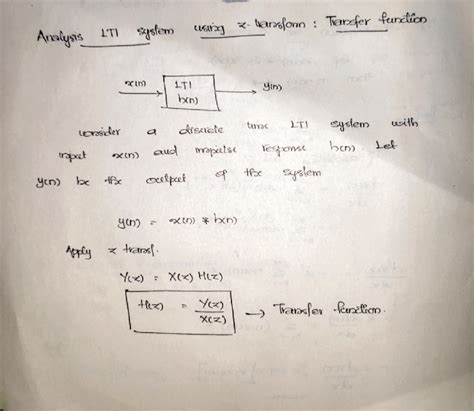 Analysis LTI system using z-transform : Transfer function
x(n) LTI y(n)
h(n)
consider a discrete time LTI system with
input x(n) and impulse response h(n). Let
y(n) be the output of the system
y(n) = x(n) * h(n)
Apply z transf.
Y(z) = X(z) H(z)
H(z) = Y(z)/X(z) → Transfer function.